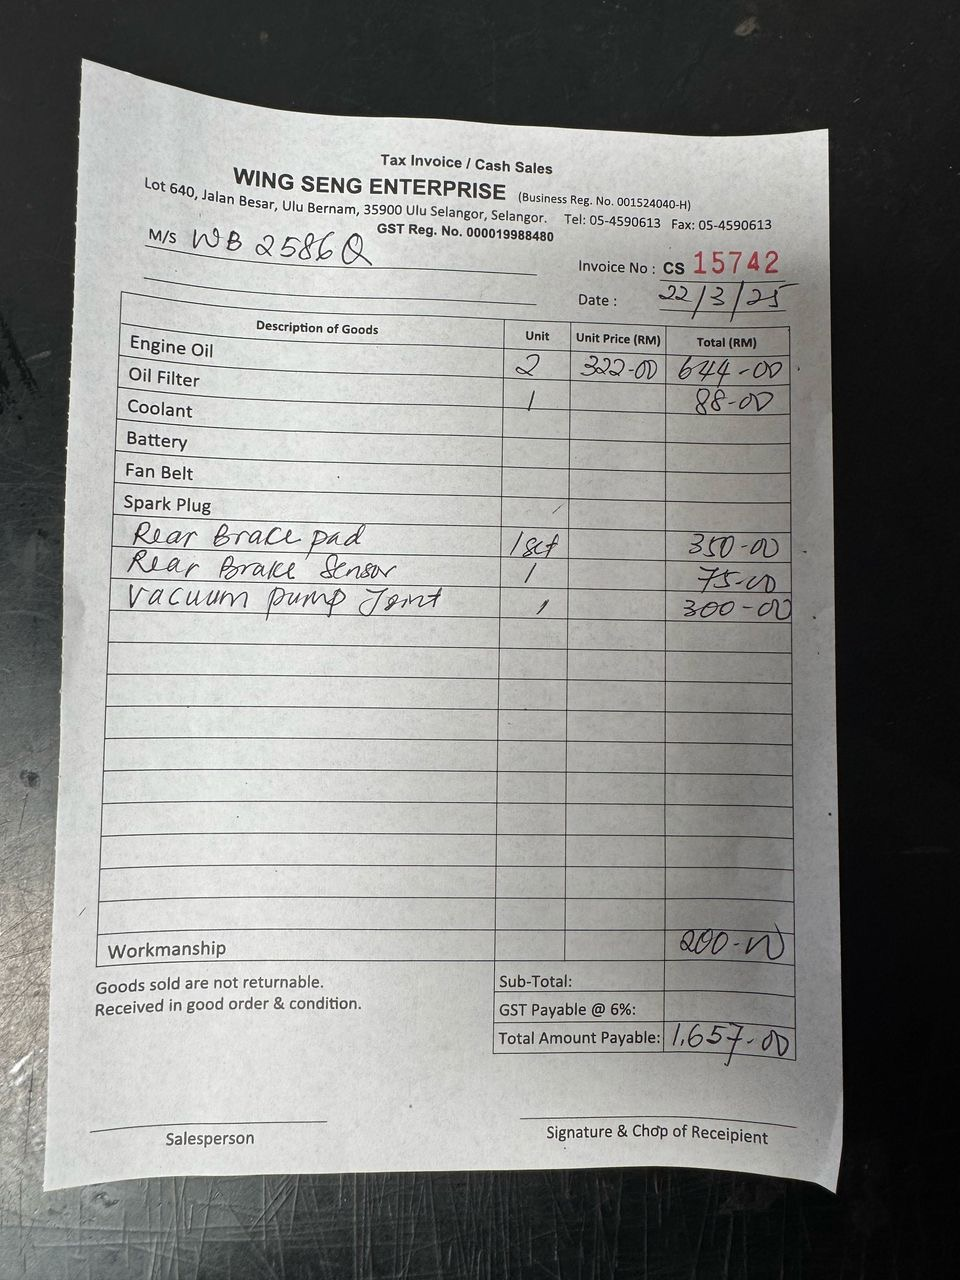 Tax Invoice / Cash Sales
WING SENG ENTERPRISE (Business Reg. No. 001524040-H)
Lot 640, Jalan Besar, Ulu Bernam, 35900 Ulu Selangor, Selangor. Tel: 05-4590613 Fax: 05-4590613
GST Reg. No. 000019988480
M/S WB 2586Q
Invoice No : CS 15742
Date : 22/3/25
Description of Goods Unit Unit Price (RM) Total (RM)
Engine Oil 2 322-00 644-00
Oil Filter 1 88-00
Coolant
Battery
Fan Belt
Spark Plug
Rear Brace pad 1 set 350-00
Rear Brake Sensor 1 75-00
Vacuum pump Joint 1 300-00
Workmanship 200-00
Goods sold are not returnable. Sub-Total:
Received in good order & condition. GST Payable @ 6%:
Total Amount Payable: 1,657-00
Salesperson Signature & Chop of Receipient